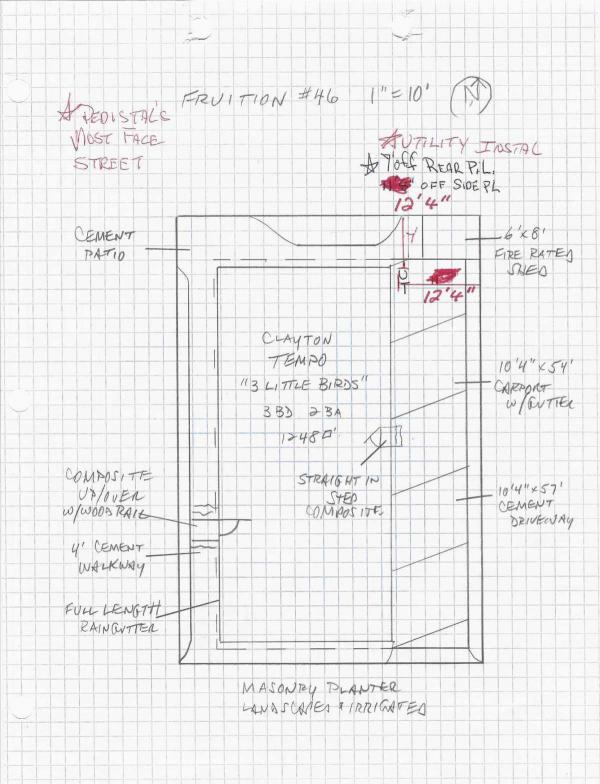 FRUITION #46 1"=10' N
☆ PEDISTAL'S
MOST FACE
STREET
☆UTILITY INSTAL
☆ 7' off REAR P.L.
OFF SIDE PL
12'4"
CEMENT
PATIO
7'
6'x8'
FIRE RATED
SHED
12'4"
CLAYTON
TEMPO
"3 LITTLE BIRDS"
3BD 2BA
1248□'
10'4"x54'
CARPORT
W/GUTTER
STRAIGHT IN
STEP
COMPOSITE
COMPOSITE
UP/OVER
W/WOOD RAIL
10'4"x57'
CEMENT
DRIVEWAY
4' CEMENT
WALKWAY
FULL LENGTH
RAINGUTTER
MASONRY PLANTER
LANDSCAPED & IRRIGATED